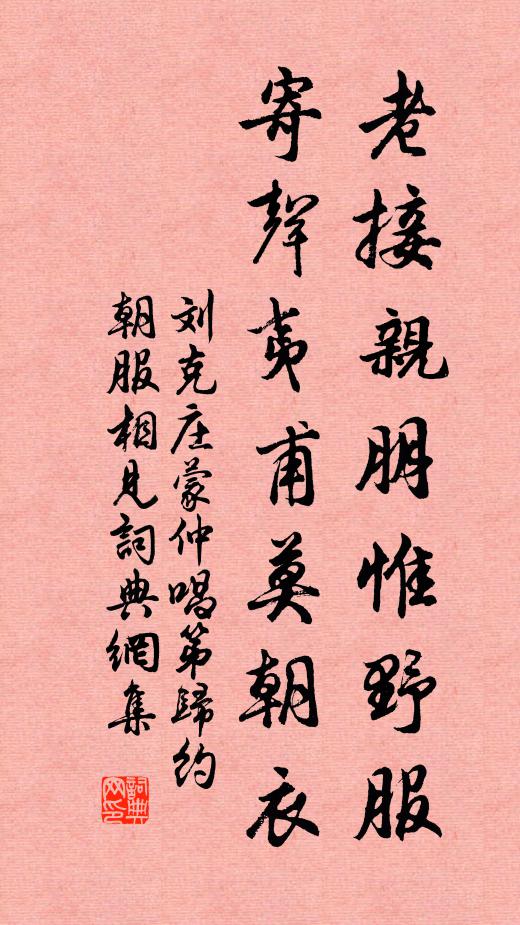 老接親朋惟野服
寄聲夷甫莫朝衣
刘克庄蒙仲唱第歸约
朝服相見詞典網集
詞典
网印